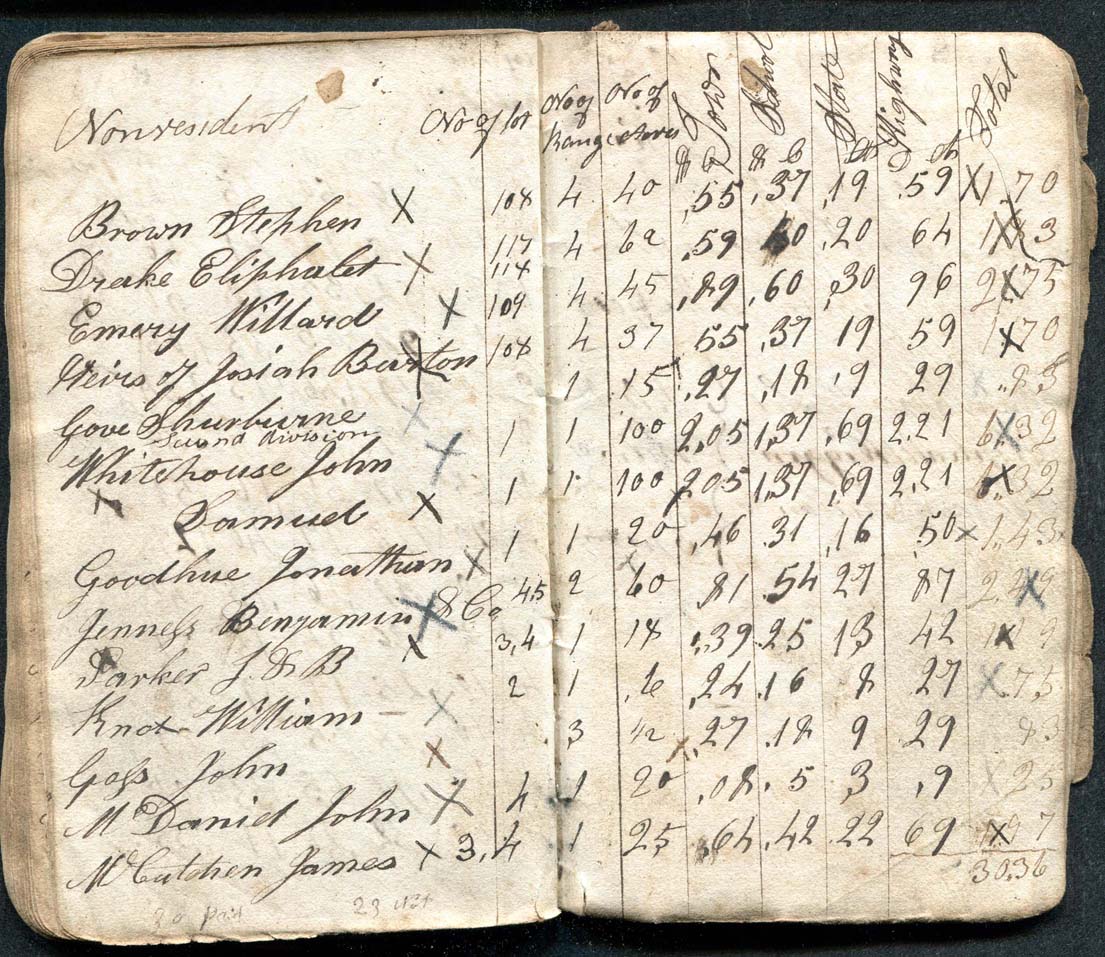 Nonresident No of lot No of Range No of Acres Town School State Highway Total
Brown Stephen X 108 4 40 ,55 ,37 ,19 ,59 X1,70
Drake Eliphalet X 117 118 4 62 ,59 40 ,20 64
Emery Willard X 109 4 45 ,89 ,60 ,30 96 2X75
Heirs of Josiah Burton X 108 4 37 ,55 ,37 19 59 1X70
Gove Shurburne X 1 15 ,27 ,18 ,9 29 X ,83
Second division
Whitehouse John X 1 1 100 2,05 1,37 ,69 2,21 6X32
Samuel X 1 1 100 2,05 1,37 ,69 2,21 6X32
Goodhue Jonathan X 1 1 20 ,46 31 ,16 ,50 X 1,43
Jenness Benjamin & Co X 45 2 60 ,81 ,54 27 87 2,49
Parker J. & B X 3,4 1 18 ,39 25 13 42
Knox William X 2 1 ,24 16 8 27 X ,75
Goss John X 3 42 X ,27 ,18 9 29 83
McDaniel John X 4 1 20 ,08 ,5 ,3 ,9 X 25
McCutchen James X 3,4 1 25 ,64 ,42 ,22 69
30,36
30 paid